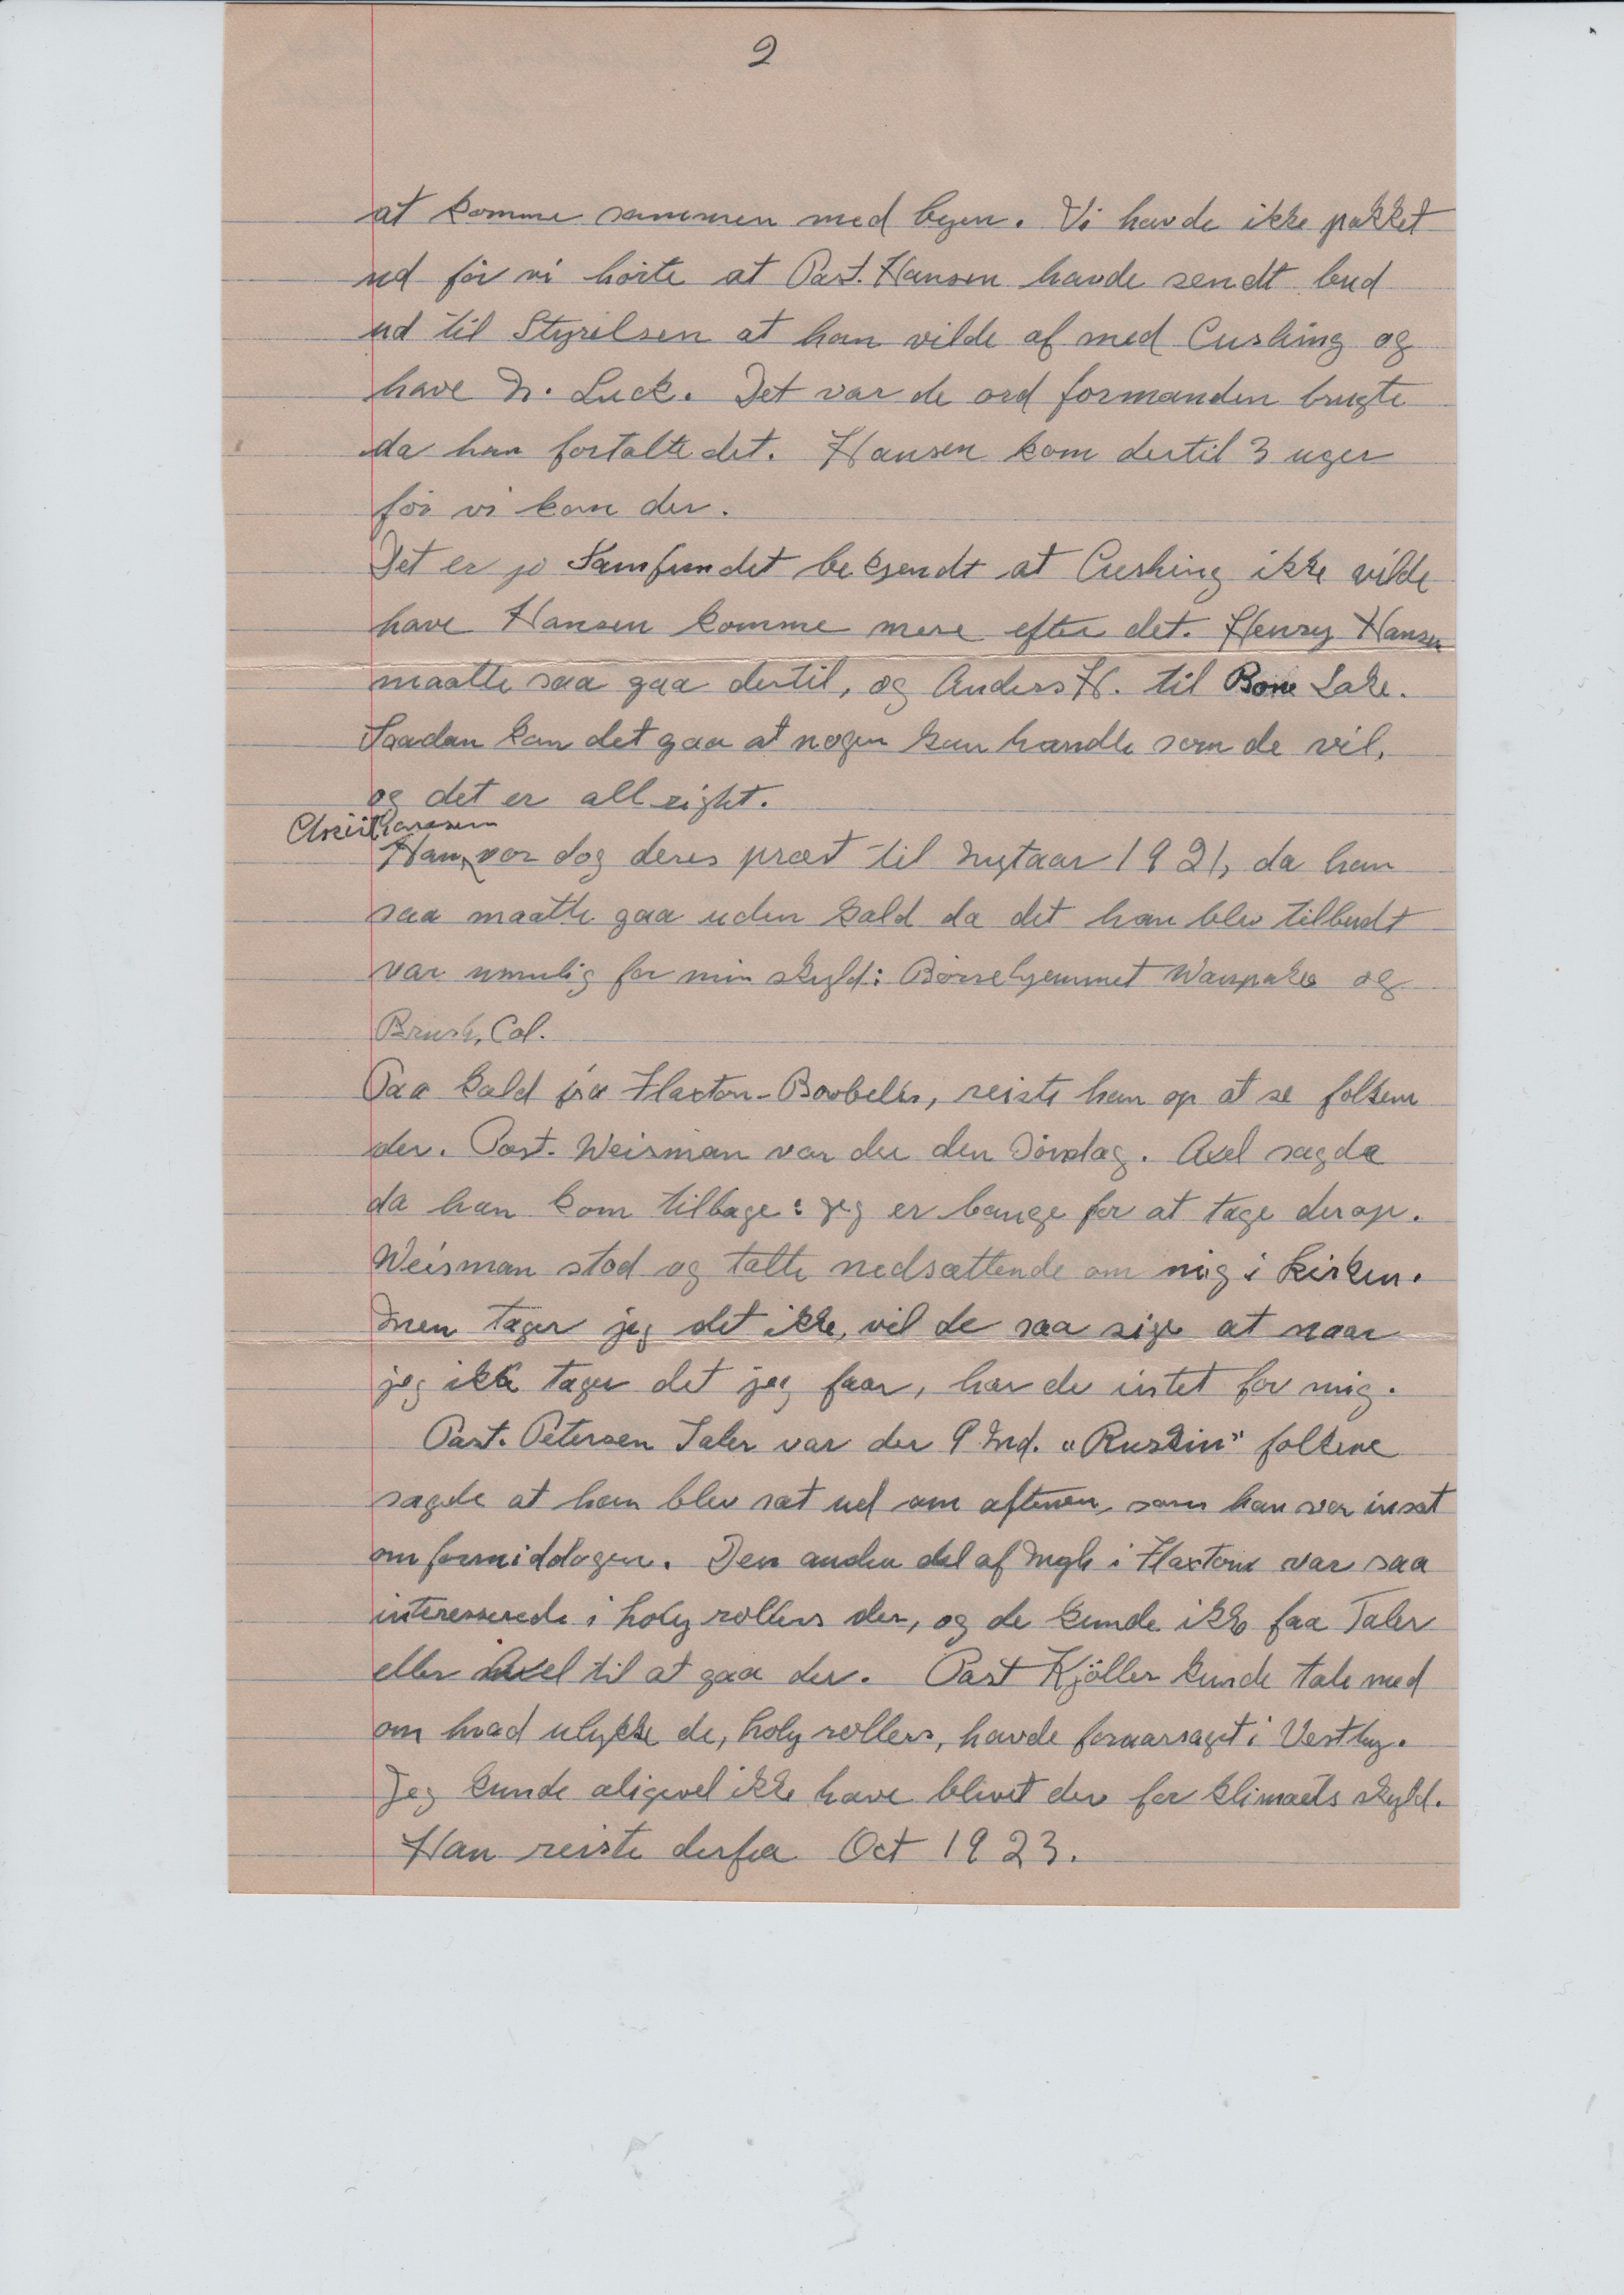 2
at komme sammen med byen. Vi havde ikke pakket
ud för vi hörte at Past. Hansen havde sendt bud
ud til Styrelsen at han vilde af med Cushing og
have N. Luck. Det var de ord formanden brugte
da han fortalte det. Hansen kom dertil 3 uger
för vi kom der.
Det er jo Samfundet bekjendt at Cushing ikke vilde
have Hansen komme mere efter det. Henry Hansen
maatte saa gaa dertil, og Anders H. til Bone Lake.
Saadan kan det gaa at nogen kan handle som de vil,
og det er all right.
Christiansen
Han var dog deres præst til Nytaar 1921, da han
saa maatte gaa uden kald da det han blev tilbudt
var umulig for min skyld: Börnehjemmet Waupaka og
Brush, Col.
Paa kald fra Flaxton-Bowbells, reiste han op at se folkene
der. Past. Weisman var der den Söndag. Axel sagde
da han kom tilbage: jeg er bange for at tage derop.
Weisman stod og talte nedsættende om mig i kirken.
Men tager jeg det ikke, vil de saa sige at naar
jeg ikke tager det jeg faar, har de intet for mig.
Past. Petersen Taler var der 9 Md. "Ruskin" folkene
sagde at han blev sat ud om aftenen, som han var insat
om formiddagen. Den anden del af Mgh i Flaxton var saa
interesserede i holy rollers der, og de kunde ikke faa Taler
eller Axel til at gaa der. Past Kjöller kunde tale med
om hvad ulykke de, holy rollers, havde foraarsaget i Vestby.
Jeg kunde aligevel ikke have blivet der for klimaets skyld.
Han reiste derfra Oct 1923.